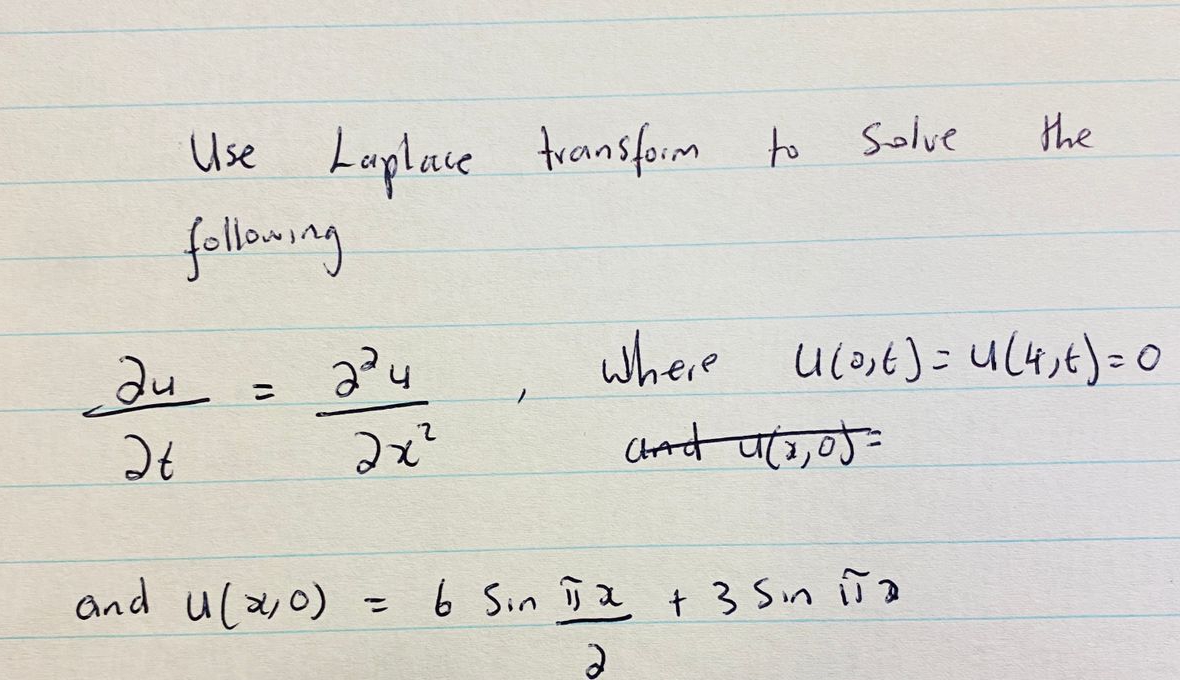 Use Laplace transform to solve the
following
∂u/∂t = ∂²u/∂x² , where u(0,t) = u(4,t) = 0
and u(x,0) =
and u(x,0) = 6 sin πx/2 + 3 sin πx